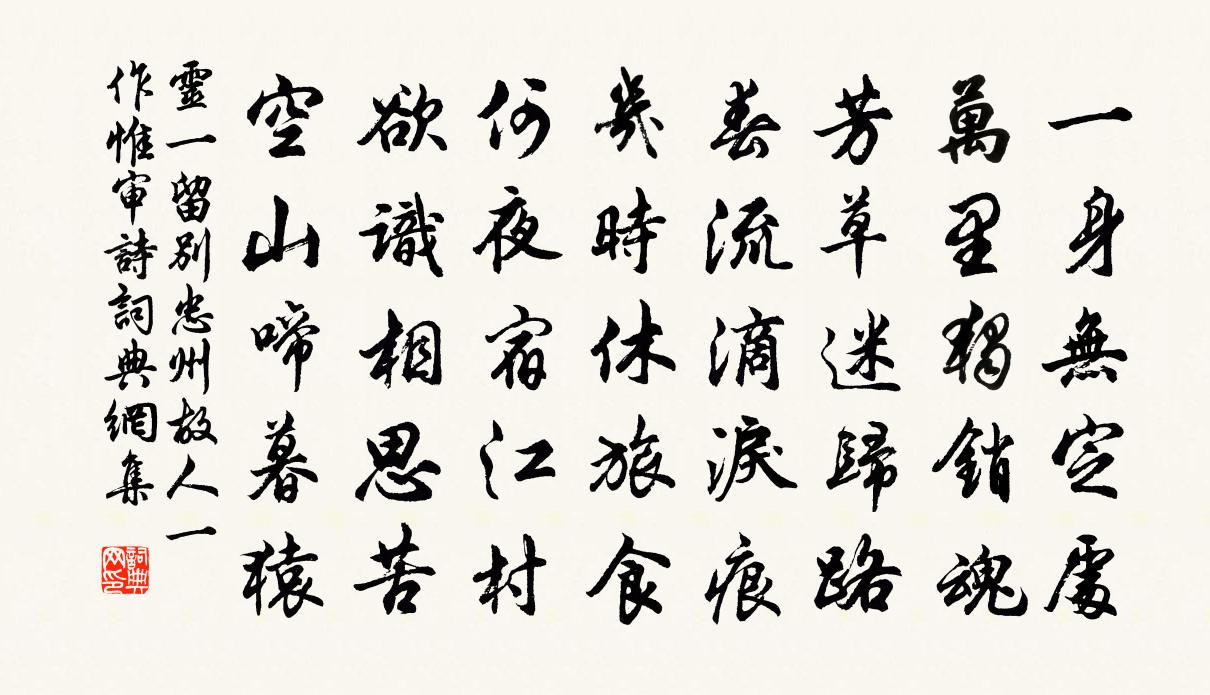 一身無定處
萬里獨銷魂
芳草迷歸路
春流滴淚痕
幾時休旅食
何夜宿江村
欲識相思苦
空山啼暮猿
靈一留別忠州故人一
作惟审詩詞典網集
詞典
网印